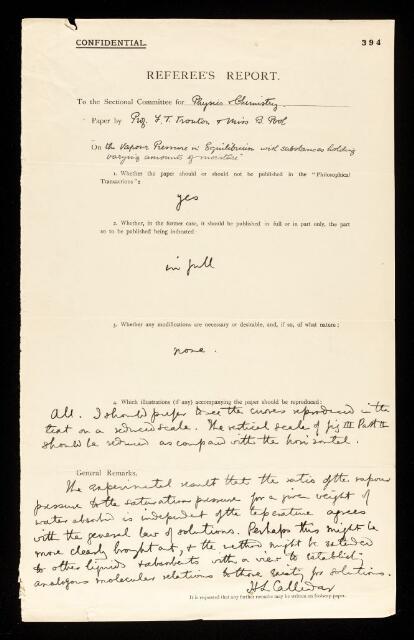 CONFIDENTIAL.
394
REFEREE'S REPORT.
To the Sectional Committee for Physics & Chemistry
Paper by Prof. F. T. Trouton & Miss B. Pool
On the Vapour Pressure in Equilibrium with substances holding
varying amounts of moisture"
1. Whether the paper should or should not be published in the "Philosophical
Transactions":
yes
2. Whether, in the former case, it should be published in full or in part only, the part
so to be published being indicated:
in full
3. Whether any modifications are necessary or desirable, and, if so, of what nature:
none.
4. Which illustrations (if any) accompanying the paper should be reproduced:
All. I should prefer to see the curves reproduced in the
text on a reduced scale. The vertical scale of fig III Part II
should be reduced as compared with the horizontal.
General Remarks.
The experimental result that the ratio of the vapour
pressure to the saturation pressure for a given weight of
water absorbed is independent of the temperature agrees
with the general law of solutions. Perhaps this might be
more clearly brought out, & the method might be extended
to other liquids & absorbents with a view to establish
analogous molecular relations to those existing for solutions.
H L Callendar
It is requested that any further remarks may be written on foolscap paper.